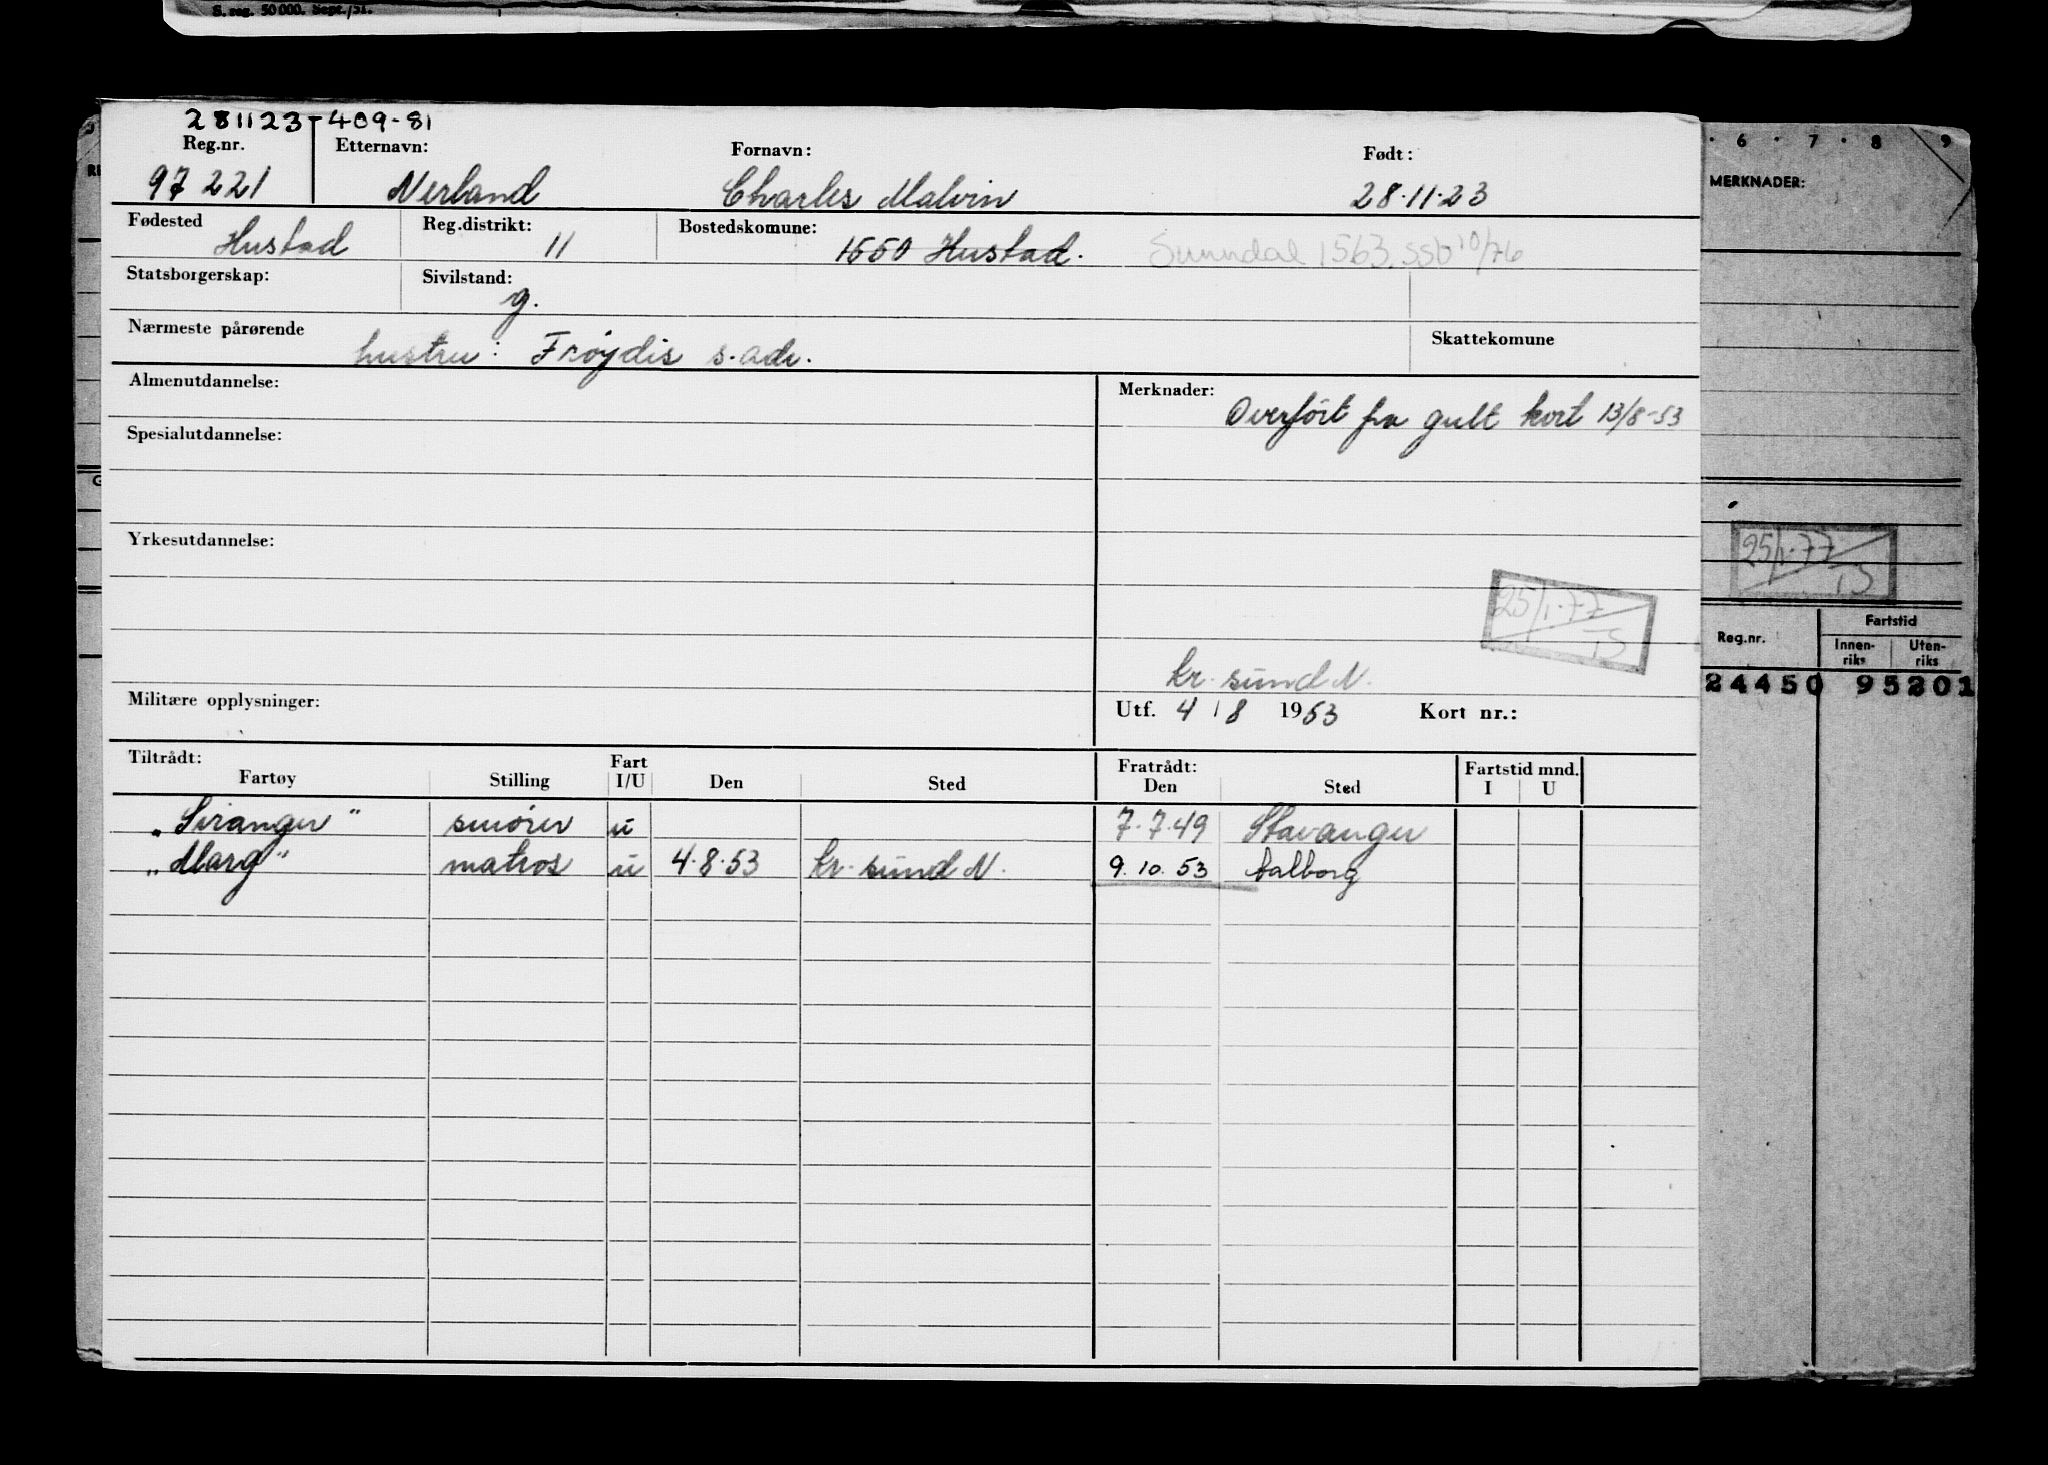 S. reg. 50 000. Sept./51.
281123-409-81
Reg.nr. Etternavn: Fornavn: Født:
97 221 Nerland Charles Malvin 28.11.23
Fødested Hustad Reg.distrikt: 11 Bostedskomune: 1550 Hustad. Sunndal 1563. SSB 10/76
Statsborgerskap: Sivilstand: g.
Nærmeste pårørende hustru: Frøydis s. adr. Skattekomune
Almenutdannelse: Merknader:
Overført fra gult kort 13/8-53
Spesialutdannelse:
Yrkesutdannelse:
25/1-77
TS
kr. sund N.
Militære opplysninger: Utf. 4 / 8 1953 Kort nr.:
Tiltrådt: Fart Fratrådt: Fartstid mnd.
Fartøy Stilling I/U Den Sted Den Sted I U
"Siranger" smører u 7.7.49 Stavanger
"Marg" matros u 4.8.53 kr. sund N. 9.10.53 Aalborg
6 · 7 · 8 9
MERKNADER:
25/1-77
TS
Reg.nr. Fartstid
Innen-riks Uten-riks
24450 95201